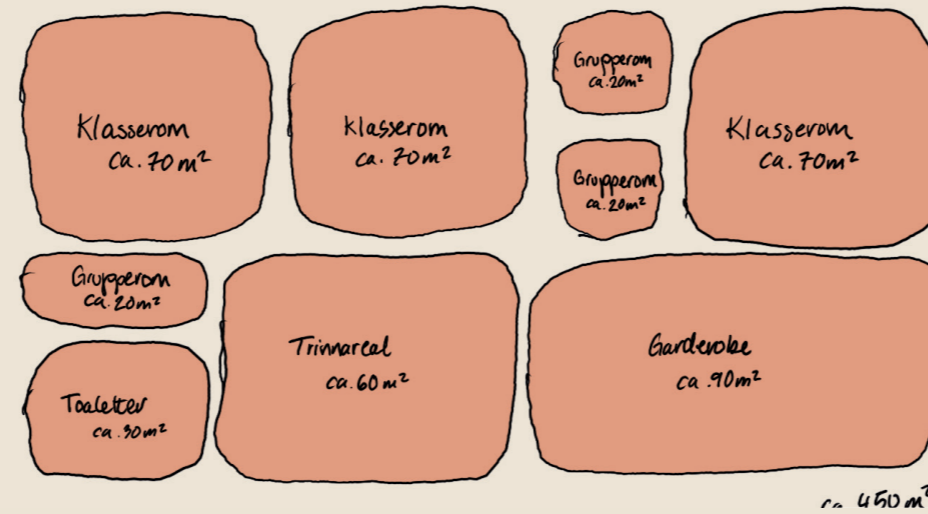 Klasserom
ca. 70 m²
Klasserom
ca. 70 m²
Grupperom
ca. 20m²
Grupperom
ca. 20m²
Klasserom
ca. 70 m²
Grupperom
ca. 20m²
Toaletter
ca. 30m²
Trinnareal
ca. 60 m²
Garderobe
ca. 90m²
ca 450 m²